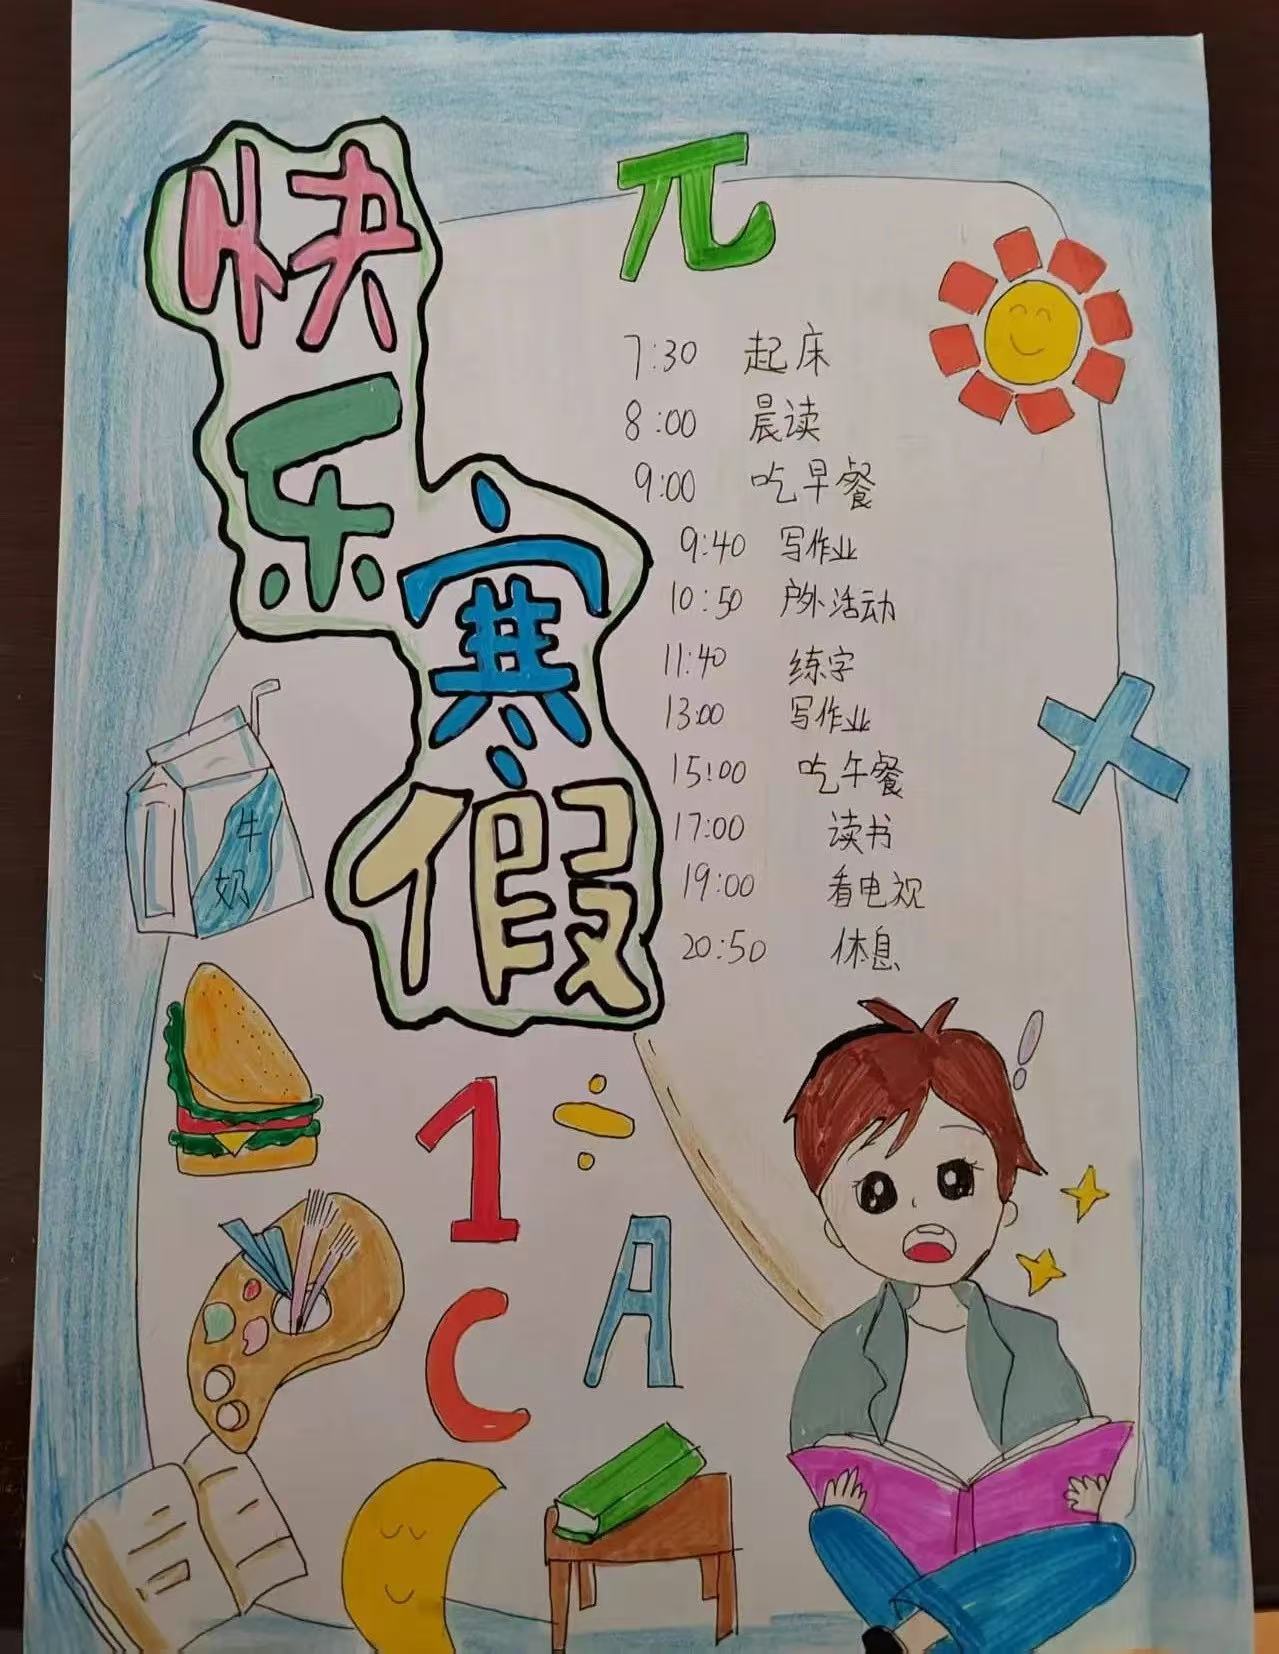 快乐寒假
π
7:30 起床
8:00 晨读
9:00 吃早餐
9:40 写作业
10:50 户外活动
11:40 练字
13:00 写作业
15:00 吃午餐
17:00 读书
19:00 看电视
20:50 休息
牛奶
!
1 ÷
C A